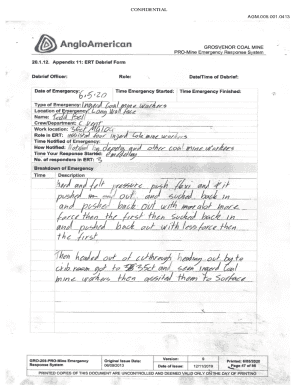 CONFIDENTIAL
AGM.005.001.0413
AngloAmerican
GROSVENOR COAL MINE
PRO-Mine Emergency Response System
20.1.12. Appendix 11: ERT Debrief Form
Debrief Officer: Role: Date/Time of Debrief:
Date of Emergency: 6.5.20 Time Emergency Started: Time Emergency Finished:
Type of Emergency: Injerd Coal mine workers
Location of Emergency: Long Wall face
Name: Todd Bell
Crew/Department:
Work location:
Role in ERT: assisted injerd Cole mine workers
Time Notified of Emergency:
How Notified: in deputy and other coal mine workers
Time Your Response Started: emergency
No. of responders in ERT: 3
Breakdown of Emergency
Time Description
herd and felt pressure push and it
pushed out, and sucked back in
and pushed back out with more
force then the first then sucked back in
and pushed back out with less force then
the first
Then headed out of cuthrough heading out by to
crib room got to 35ct and seen injerd Coal
mine workers then assisted them to Surface
GRO-209-PRO-Mine Emergency Response System
Original Issue Date: 06/09/2013
Version: 9
Date of Issue: 12/11/2018
Printed: 6/05/2020
Page 47 of 48
PRINTED COPIES OF THIS DOCUMENT ARE UNCONTROLLED AND DEEMED VALID ONLY ON THE DAY OF PRINTING